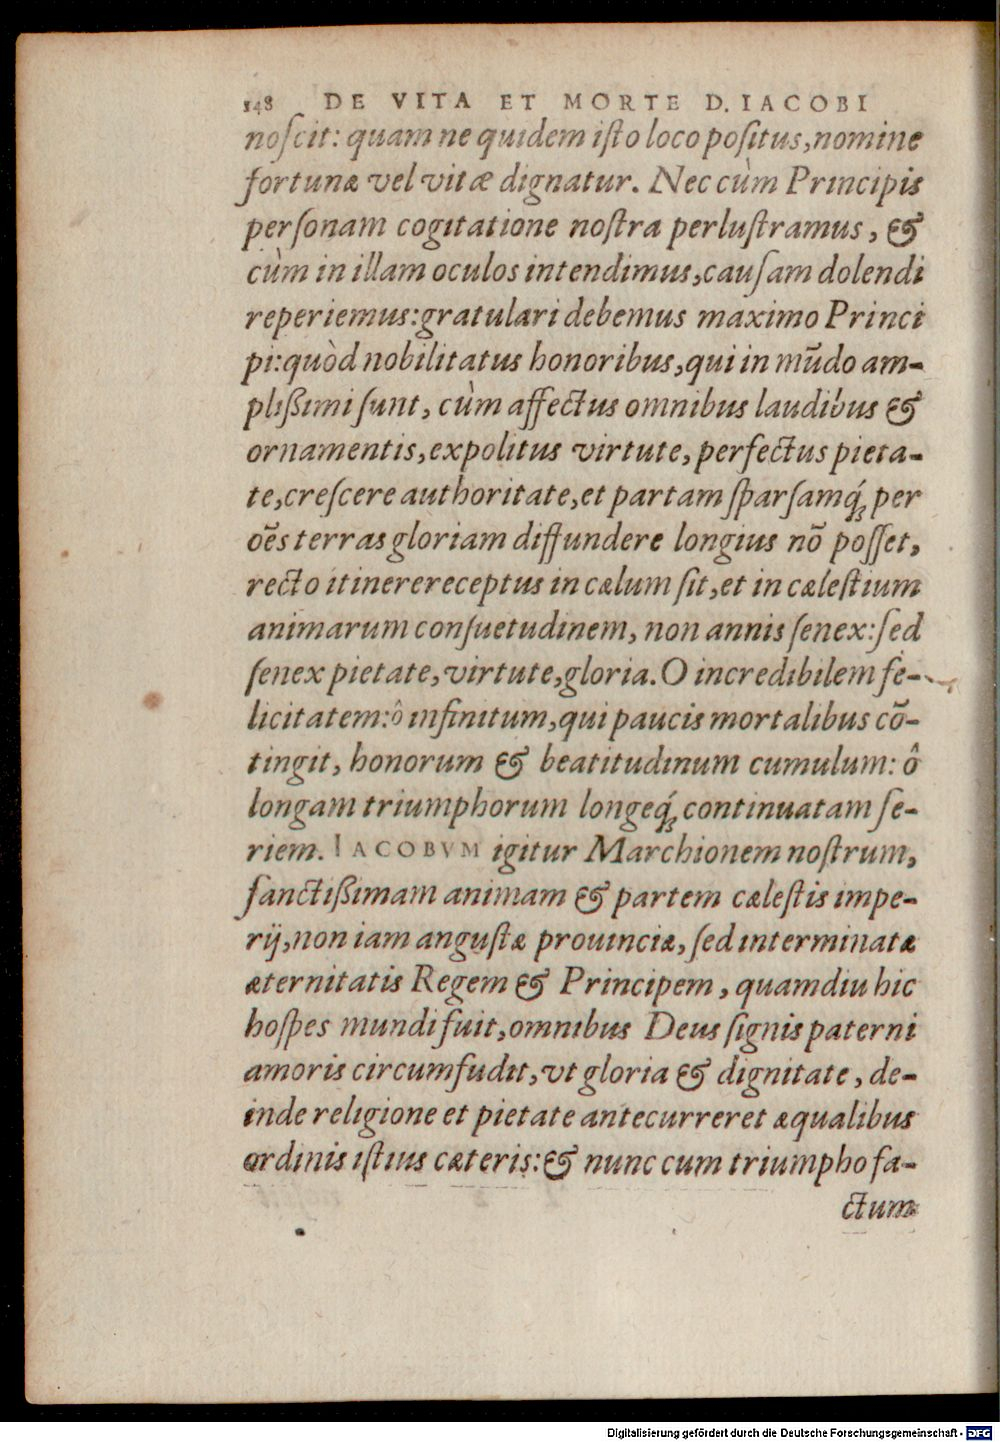 148 DE VITA ET MORTE D. IACOBI
noſcit: quam ne quidem iſto loco poſitus, nomine
fortunæ vel vitæ dignatur. Nec cùm Principis
perſonam cogitatione noſtra perluſtramus, &
cùm in illam oculos intendimus, cauſam dolendi
reperiemus: gratulari debemus maximo Princi
pi: quòd nobilitatus honoribus, qui in mũdo am-
plißimi ſunt, cùm affectus omnibus laudibus &
ornamentis, expolitus virtute, perfectus pieta-
te, creſcere authoritate, et partam ſparſamq́; per
oẽs terras gloriam diffundere longius nõ poſſet,
recto itinere receptus in cælum ſit, et in cæleſtium
animarum conſuetudinem, non annis ſenex: ſed
ſenex pietate, virtute, gloria. O incredibilem fe-
licitatem: ô infinitum, qui paucis mortalibus cõ-
tingit, honorum & beatitudinum cumulum: ô
longam triumphorum longeq́; continuatam ſe-
riem. IACOBVM igitur Marchionem noſtrum,
ſanctißimam animam & partem cæleſtis impe-
rij, non iam anguſtæ prouinciæ, ſed interminatæ
æternitatis Regem & Principem, quamdiu hic
hoſpes mundi fuit, omnibus Deus ſignis paterni
amoris circumfudit, vt gloria & dignitate, de-
inde religione et pietate antecurreret æqualibus
ordinis iſtius cæteris: & nunc cum triumpho fa-
ctum
Digitalisierung gefördert durch die Deutsche Forschungsgemeinschaft - DFG